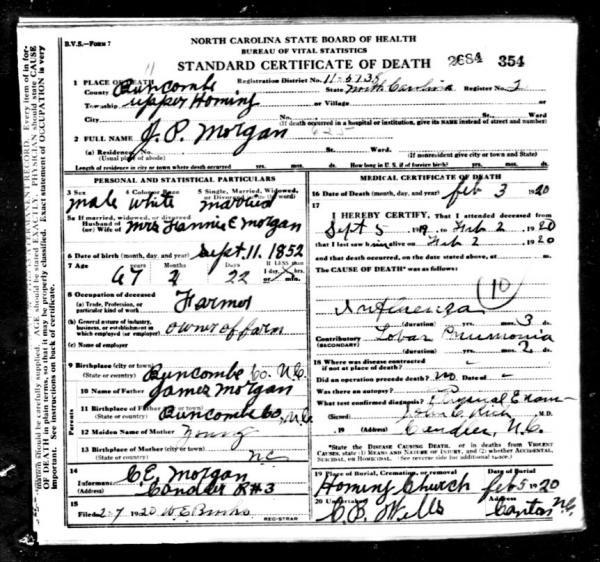 NORTH CAROLINA STATE BOARD OF HEALTH
BUREAU OF VITAL STATISTICS
B.V.S.—FORM 7
STANDARD CERTIFICATE OF DEATH 2684 354
1 PLACE OF DEATH Registration District No. 11-5735
County Buncombe State North Carolina Register No. 2
Township Upper Hominy or Village
City No. St. Ward
(If death occurred in a hospital or institution, give its NAME instead of street and number)
2 FULL NAME J. P. Morgan
(a) Residence No. St. Ward
(Usual place of abode) (If nonresident give city or town and State)
Length of residence in city or town where death occurred yrs. mos. ds. How long in U. S. if of foreign birth? yrs. mos. ds.
PERSONAL AND STATISTICAL PARTICULARS
3 Sex 4 Color or Race 5 Single, Married, Widowed, or Divorced
male white married
5a If married, widowed, or divorced
Husband of
(or) Wife of Mrs Fannie E Morgan
6 Date of birth (month, day, and year) Sept. 11. 1852
7 Age years Months Days If LESS than
67 4 22 1 day, hrs.
8 Occupation of deceased
(a) Trade, Profession, or
particular kind of work Farmer
(b) General nature of industry,
business, or establishment in
which employed (or employer) owner of farm
(c) Name of employer
9 Birthplace (city or town) Buncombe Co. N.C.
(State or country)
10 Name of Father James Morgan
11 Birthplace of Father (city or town) Buncombe Co, N.C.
(State or country)
12 Maiden Name of Mother Young
13 Birthplace of Mother (city or town)
(State or country) N.C.
Parents
14
Informant C.E. Morgan
(Address) Candler R#3
15
Filed 2-7 1920
REGISTRAR
MEDICAL CERTIFICATE OF DEATH
16 Date of Death (month, day, and year) Feb 3 1920
17
I HEREBY CERTIFY, That I attended deceased from
Sept 5 1919 to Feb 2 1920
that I last saw him alive on Feb 2 1920
and that death occurred, on the date stated above, at m.
The CAUSE OF DEATH was as follows:
10
Influenza
(duration) yrs. mos. 3 ds.
Contributory Lobar Pneumonia
(SECONDARY)
(duration) yrs. mos. 2 ds.
18 Where was disease contracted
if not at place of death?
Did an operation precede death? no Date of -
Was there an autopsy?
What test confirmed diagnosis? Physical Exam-
(Signed) M.D.
, 19 (Address) Candler, N.C.
*State the DISEASE CAUSING DEATH, or in deaths from VIOLENT
CAUSES, state (1) MEANS AND NATURE OF INJURY, and (2) whether ACCIDENTAL,
SUICIDAL, or HOMICIDAL. (See reverse side for additional space.)
19 Place of Burial, Cremation, or removal Date of Burial
Hominy Church Feb 5 1920
20 Undertaker Address
C. B. Wells Canton N.C.